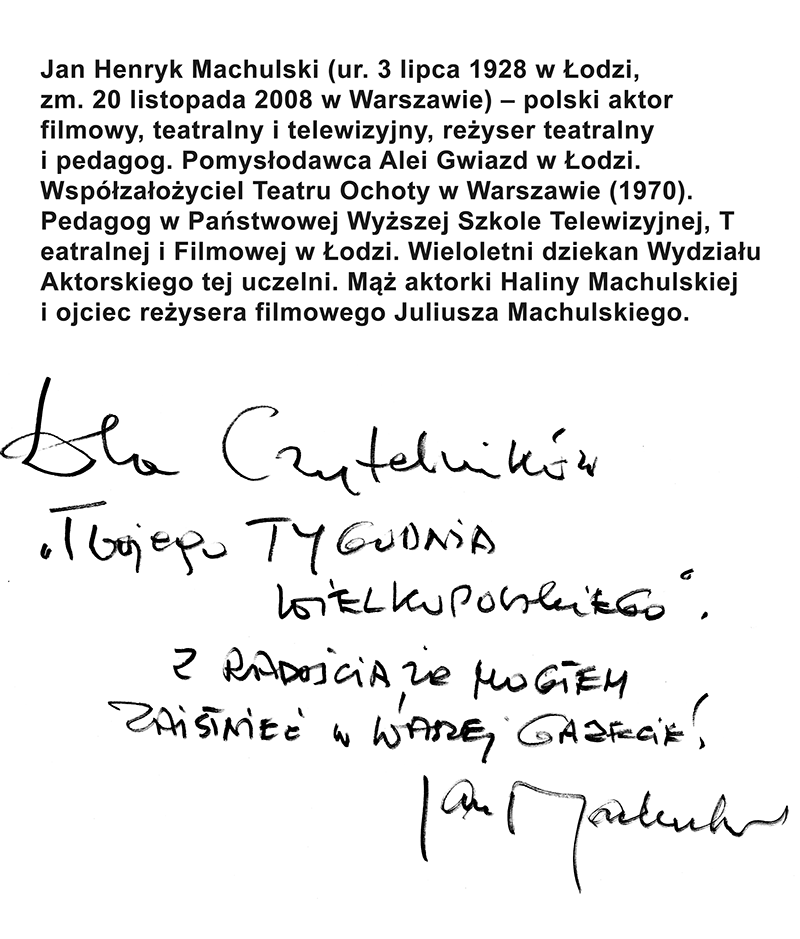 Jan Henryk Machulski (ur. 3 lipca 1928 w Łodzi,
zm. 20 listopada 2008 w Warszawie) – polski aktor
filmowy, teatralny i telewizyjny, reżyser teatralny
i pedagog. Pomysłodawca Alei Gwiazd w Łodzi.
Współzałożyciel Teatru Ochoty w Warszawie (1970).
Pedagog w Państwowej Wyższej Szkole Telewizyjnej, T
eatralnej i Filmowej w Łodzi. Wieloletni dziekan Wydziału
Aktorskiego tej uczelni. Mąż aktorki Haliny Machulskiej
i ojciec reżysera filmowego Juliusza Machulskiego.
Dla Czytelników
„Twojego TYGODNIA
WIELKOPOLSKIEGO".
Z RADOŚCIĄ, że MOGŁEM
ZAISTNIEĆ W WASZEJ GAZECIE!
Jan Machulski